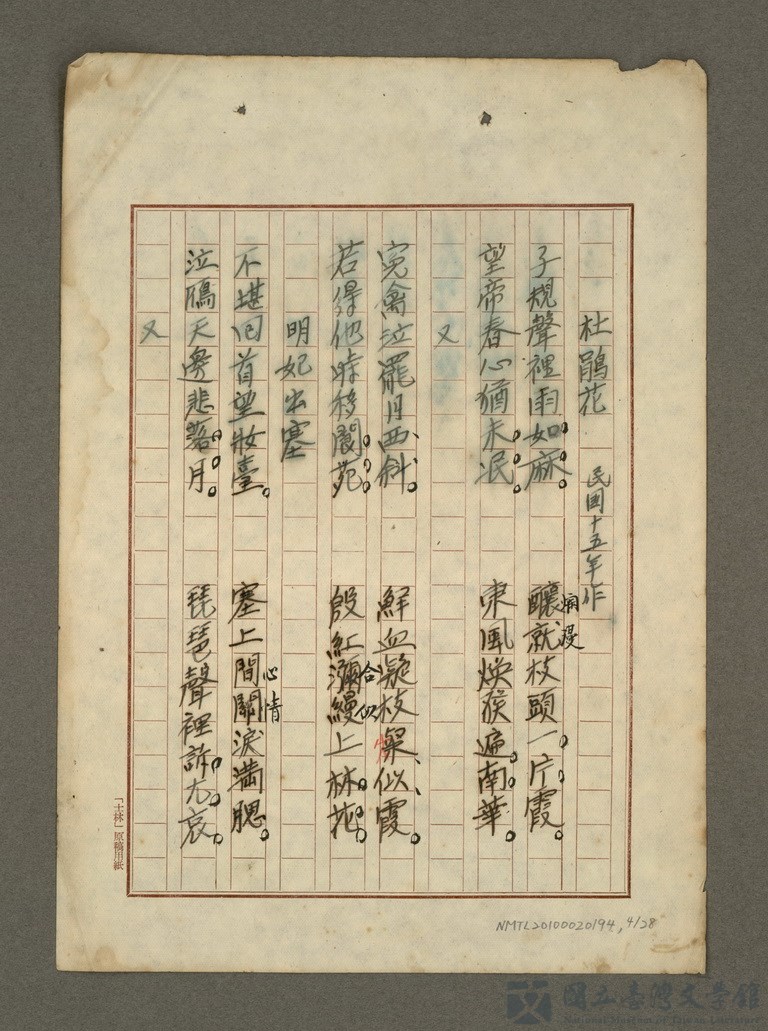 杜鵑花 民國十五年作
子規聲裡雨如麻。 釀就枝頭一片霞。
爛漫
望帝春心猶未泯。 東風煥遍南華。
又
冤禽泣罷月西斜。 鮮血凝枝粲似霞。
若得他時移閬苑。 殷紅瀰縵上林花。
合似
明妃出塞
不堪回首望妝臺。 塞上間關淚滿腮。
心情
泣鴈天邊悲落月。 琵琶聲裡訴尤哀。
又
「士林」原稿用紙
NMTL20100020194, 4/28
國立臺灣文學館
National Museum of Taiwan Literature